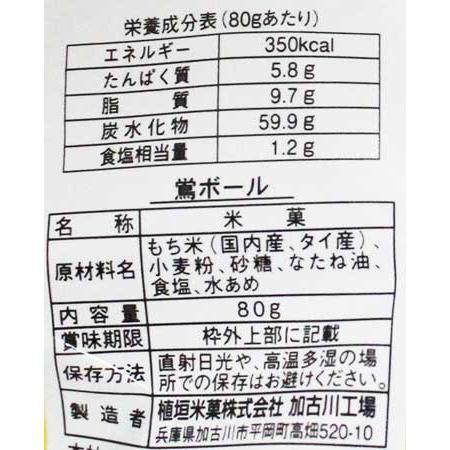 栄養成分表(80gあたり)
エネルギー 350kcal
たんぱく質 5.8g
脂質 9.7g
炭水化物 59.9g
食塩相当量 1.2g
鴬ボール
名称 米菓
原材料名 もち米(国内産、タイ産)、
小麦粉、砂糖、なたね油、
食塩、水あめ
内容量 80g
賞味期限 枠外上部に記載
保存方法 直射日光や、高温多湿の場
所での保存はお避けください。
製造者 植垣米菓株式会社 加古川工場
兵庫県加古川市平岡町高畑520-10